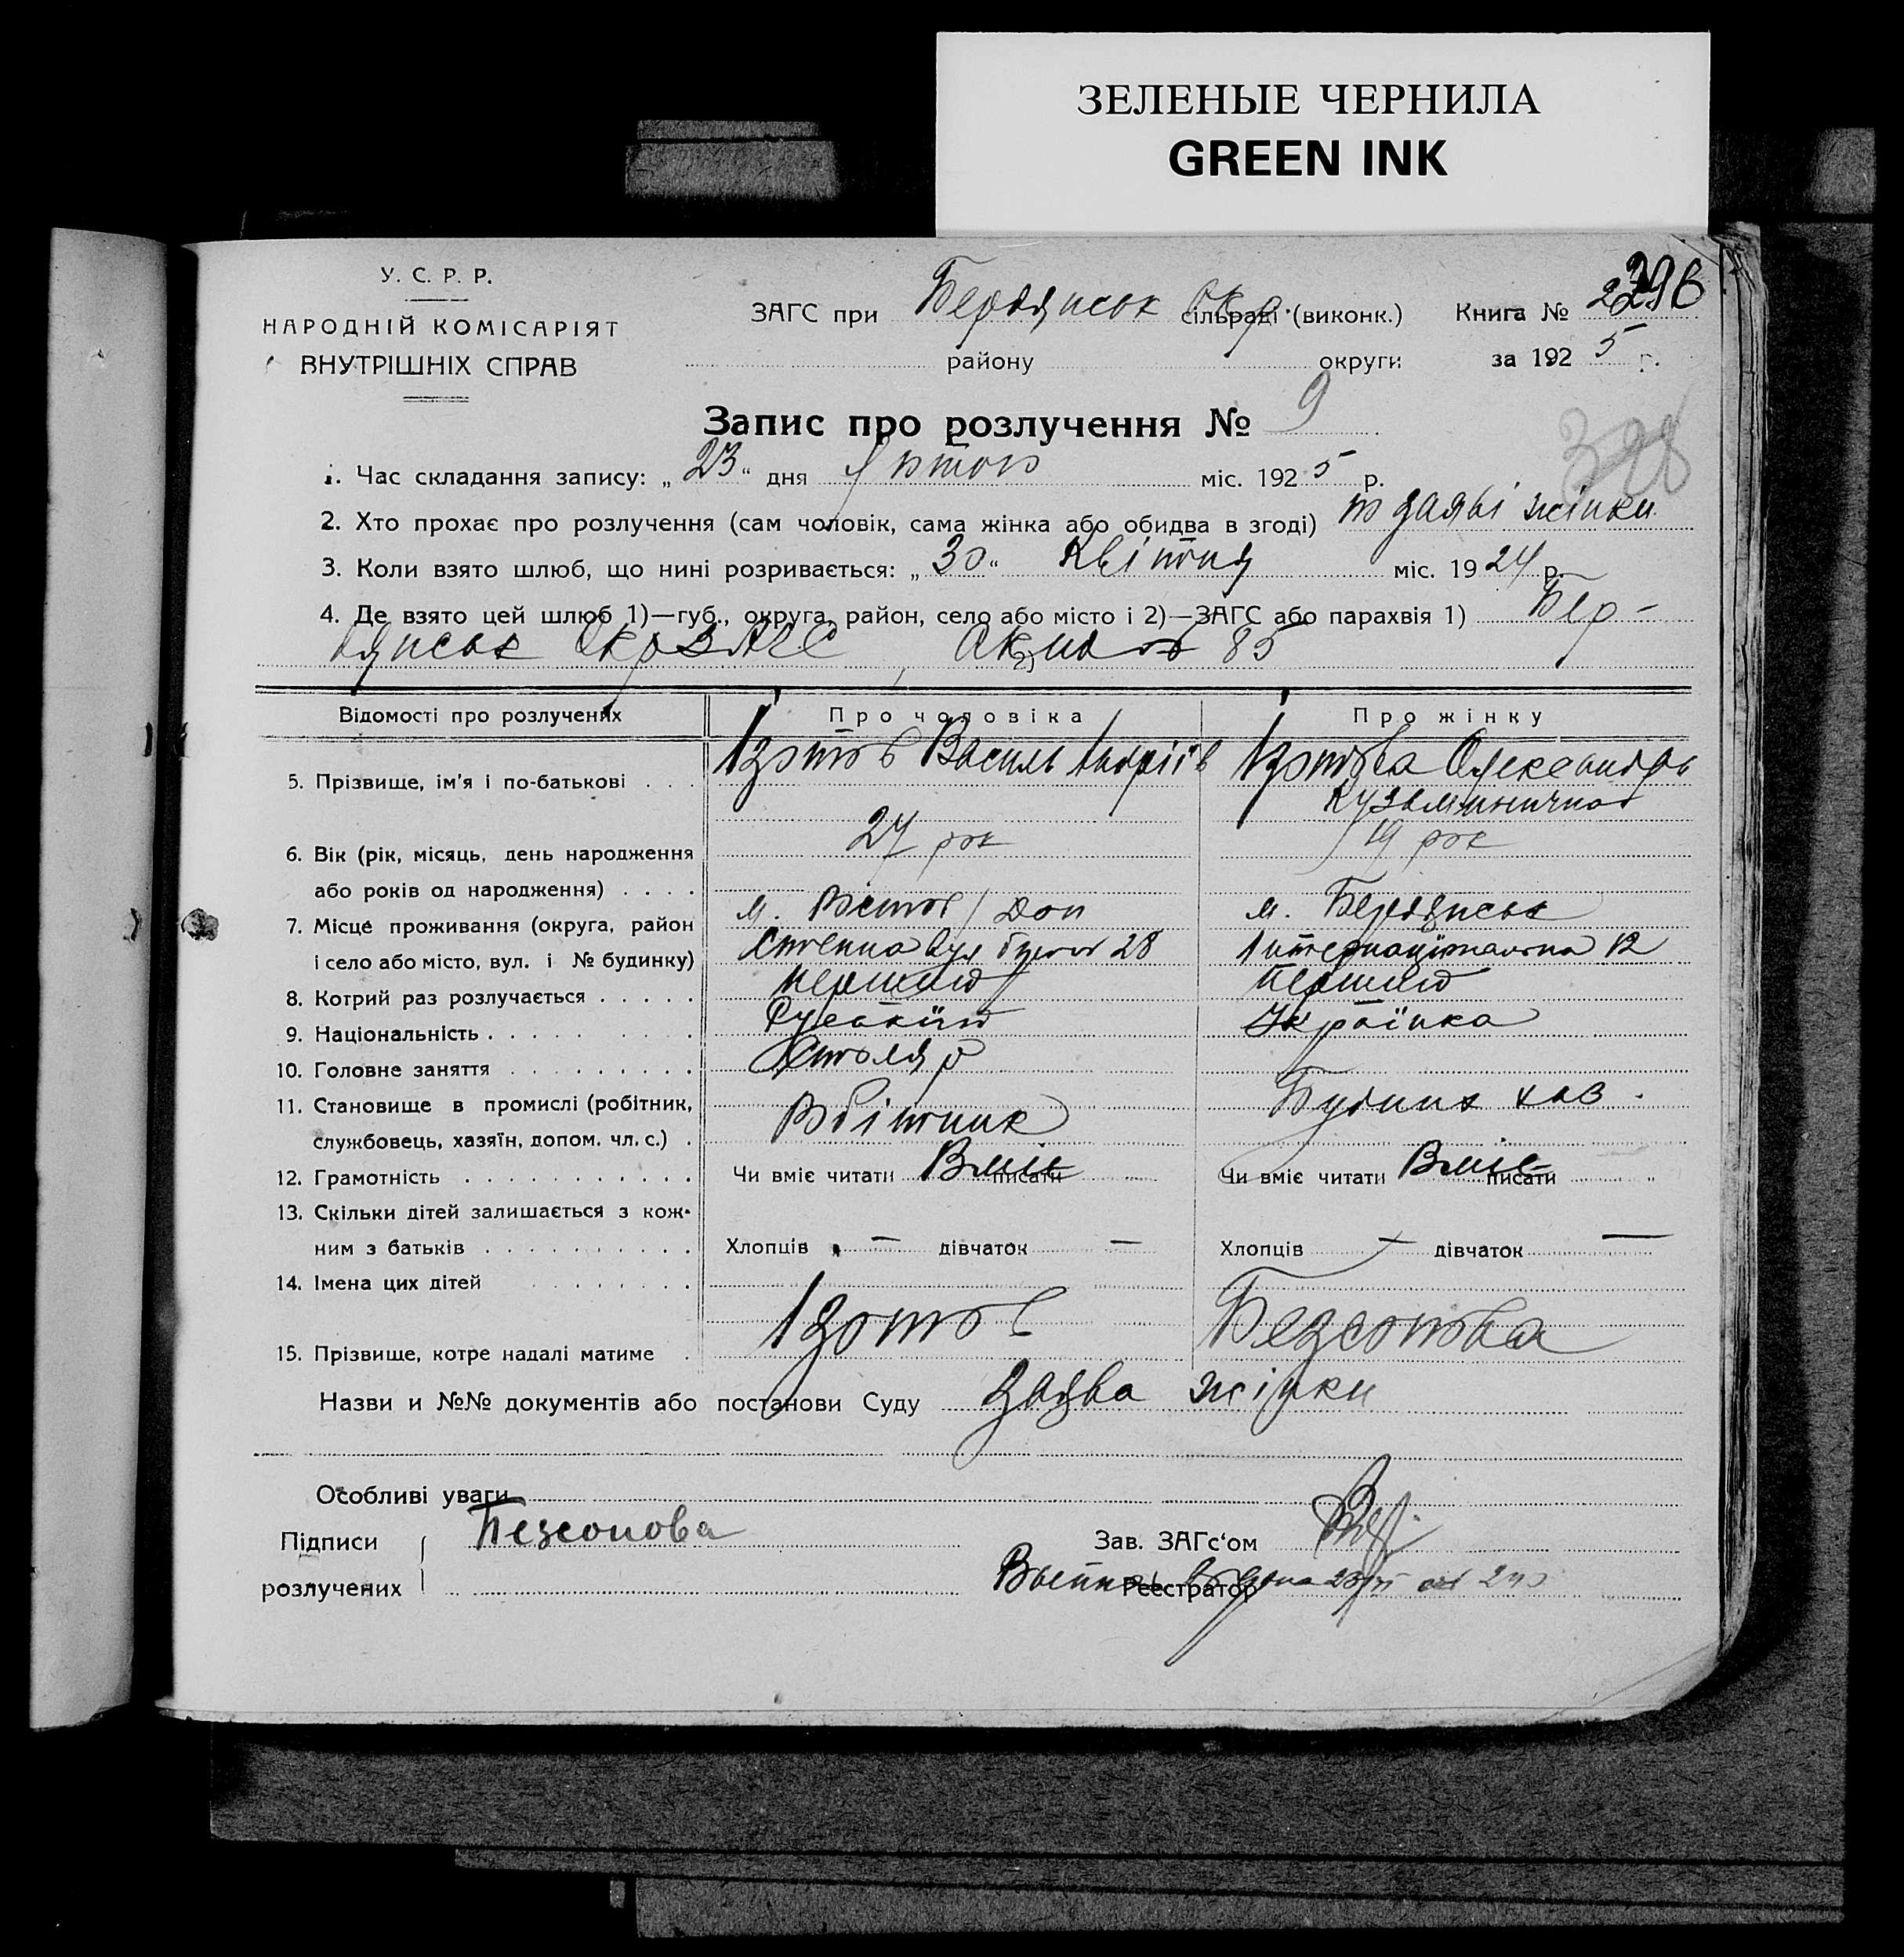 ЗЕЛЕНЫЕ ЧЕРНИЛА
GREEN INK
У. С. Р. Р.
НАРОДНІЙ КОМІСАРІЯТ
ВНУТРІШНІХ СПРАВ
ЗАГС при Бердянськ Окр. сільраді (виконк.) Книга №
району округи за 1925 р.
Запис про розлучення № 9
398
1. Час складання запису: „23“ дня міс. 1925 р.
2. Хто прохає про розлучення (сам чоловік, сама жінка або обидва в згоді) по заяві жінки
3. Коли взято шлюб, що нині розривається: „30“ Квітня міс. 1924 р.
4. Де взято цей шлюб 1)—губ., округа, район, село або місто і 2)—ЗАГС або парахвія 1) Бер-
дянськ ОкрЗАГС 2) 85
Відомості про розлучених Про чоловіка Про жінку
5. Прізвище, ім'я і по-батькові . . . Ізотов Василь Андріїв Ізотова Олександра
Кузьминична
6. Вік (рік, місяць, день народження 27 рок 19 рок
або років од народження) . . . .
7. Місце проживання (округа, район м. Ростов/Дон м. Бердянськ
і село або місто, вул. і № будинку) Степна вул 28 Інтернаціональна 12
8. Котрий раз розлучається . . . . . перший перший
9. Національність . . . . Руський Українка
10. Головне заняття . . . . . . . . . Столяр
11. Становище в промислі (робітник, Робітник Будинк хаз.
службовець, хазяїн, допом. чл. с.) .
12. Грамотність . . . . . . . . . . . Чи вміє читати Вміє писати Чи вміє читати Вміє писати
13. Скільки дітей залишається з кож-
ним з батьків . . . . . . . . . . Хлопців — дівчаток — Хлопців — дівчаток —
14. Імена цих дітей . . . . . . .
15. Прізвище, котре надалі матиме . Ізотов Безсонова
Назви и №№ документів або постанови Суду заява жінки
Особливі уваги
Підписи Безсонова Зав. ЗАГс‘ом
розлучених Реєстратор